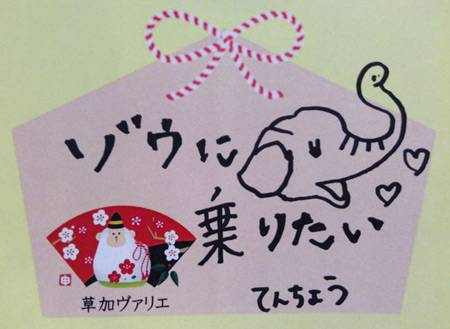 ゾウに
乗りたい
てんちょう
申
草加ヴァリエ